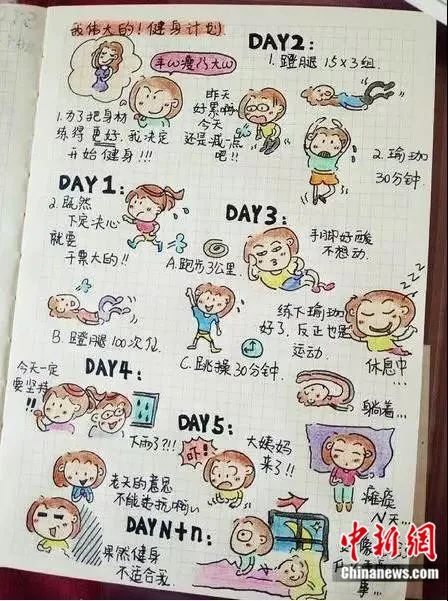 我伟大的!健身计划
半ω瘦了大ω
1.为了把身材
练得更好,我决定
开始健身!!!
DAY1:
2.既然
下定决心
就要
干票大的!!
A.跑步3公里.
B.蹬腿100次/位
C.跳操30分钟.
DAY2:
1.蹬腿15×3组.
昨天
好累啊
今天
还是减一点
吧!!
2.瑜珈
30分钟.
DAY3:
手脚好酸
不想动.
练下瑜珈
好了.反正也是
运动.
zzz
休息中...
躺着...
DAY4:
今天一定
要坚持!!
下雨了?!!
老天的意思
不能违抗啊~
DAY5:
吓!!
大姨妈
来了!!
瘫痪
N天...
DAYN+n:
果然健身
不适合我.
中新网
Chinanews.com